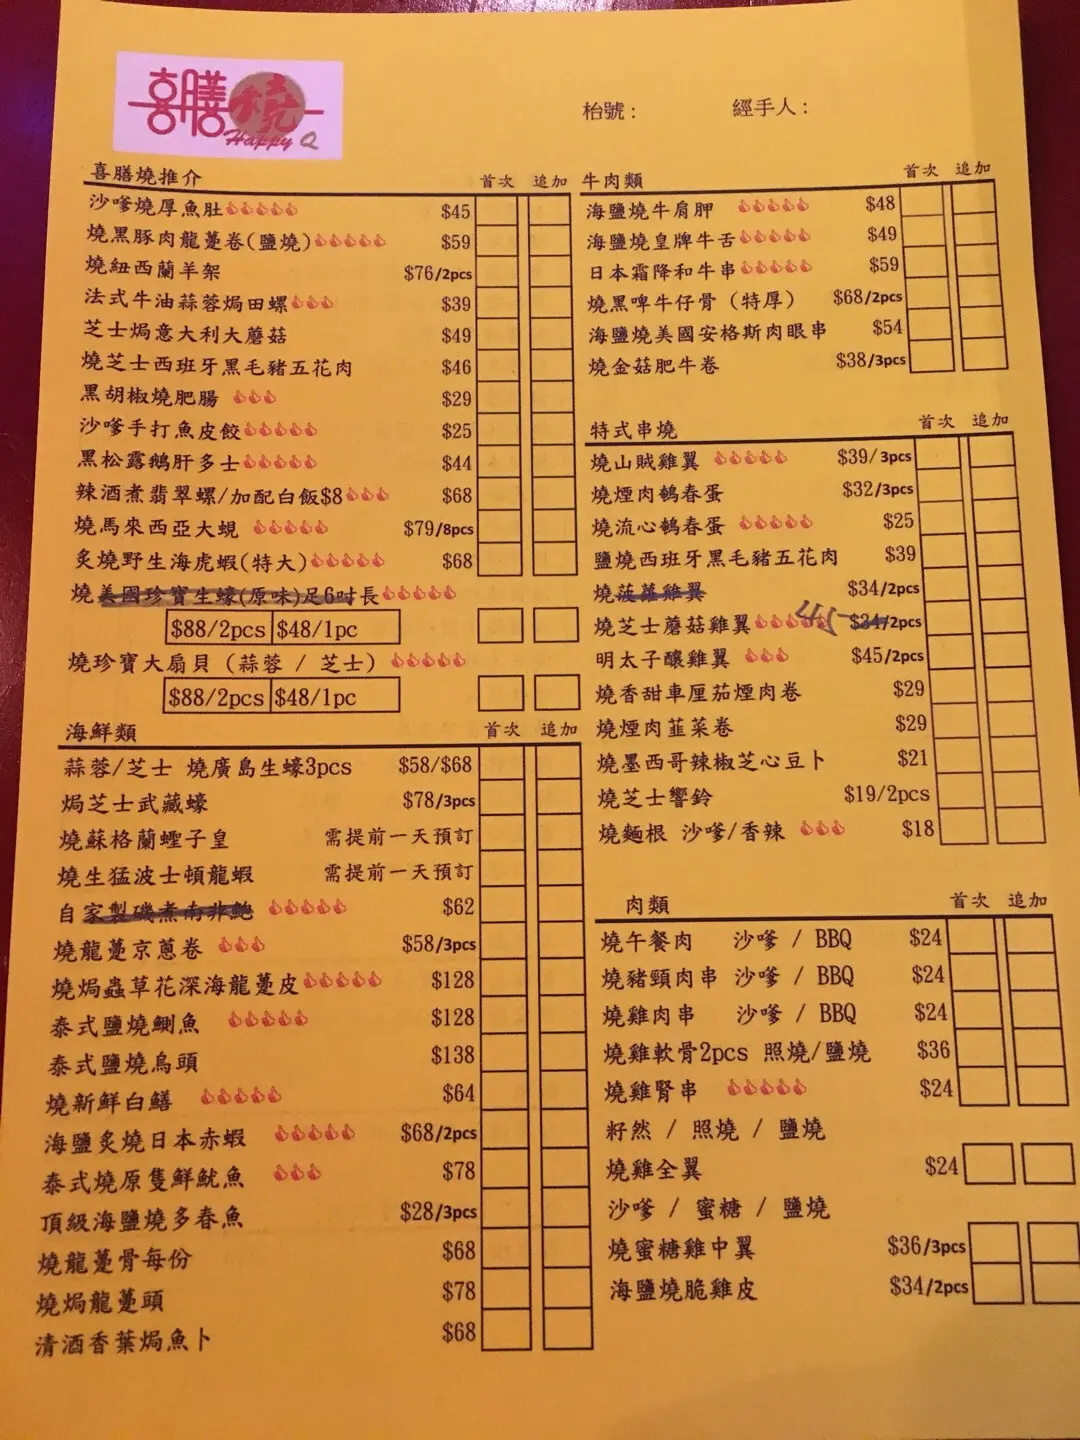 喜膳燒
Happy Q
枱號：
經手人：
喜膳燒推介 首次 追加
沙嗲燒厚魚肚 $45
燒黑豚肉龍躉卷(鹽燒) $59
燒紐西蘭羊架 $76/2pcs
法式牛油蒜蓉焗田螺 $39
芝士焗意大利大蘑菇 $49
燒芝士西班牙黑毛豬五花肉 $46
黑胡椒燒肥腸 $29
沙嗲手打魚皮餃 $25
黑松露鵝肝多士 $44
辣酒煮翡翠螺/加配白飯$8 $68
燒馬來西亞大蜆 $79/8pcs
炙燒野生海虎蝦(特大) $68
燒美國珍寶生蠔(原味)足6吋長
$88/2pcs $48/1pc
燒珍寶大扇貝（蒜蓉 / 芝士）
$88/2pcs $48/1pc
海鮮類 首次 追加
蒜蓉/芝士 燒廣島生蠔3pcs $58/$68
焗芝士武藏蠔 $78/3pcs
燒蘇格蘭蟶子皇 需提前一天預訂
燒生猛波士頓龍蝦 需提前一天預訂
自家製磯煮南非鮑 $62
燒龍躉京蔥卷 $58/3pcs
燒焗蟲草花深海龍躉皮 $128
泰式鹽燒鰂魚 $128
泰式鹽燒烏頭 $138
燒新鮮白鱔 $64
海鹽炙燒日本赤蝦 $68/2pcs
泰式燒原隻鮮魷魚 $78
頂級海鹽燒多春魚 $28/3pcs
燒龍躉骨每份 $68
燒焗龍躉頭 $78
清酒香葉焗魚卜 $68
牛肉類 首次 追加
海鹽燒牛肩胛 $48
海鹽燒皇牌牛舌 $49
日本霜降和牛串 $59
燒黑啤牛仔骨（特厚） $68/2pcs
海鹽燒美國安格斯肉眼串 $54
燒金菇肥牛卷 $38/3pcs
特式串燒 首次 追加
燒山賊雞翼 $39/3pcs
燒煙肉鵪春蛋 $32/3pcs
燒流心鵪春蛋 $25
鹽燒西班牙黑毛豬五花肉 $39
燒菠蘿雞翼 $34/2pcs
燒芝士蘑菇雞翼 45 $34/2pcs
明太子釀雞翼 $45/2pcs
燒香甜車厘茄煙肉卷 $29
燒煙肉韮菜卷 $29
燒墨西哥辣椒芝心豆卜 $21
燒芝士響鈴 $19/2pcs
燒麵根 沙嗲/香辣 $18
肉類 首次 追加
燒午餐肉 沙嗲 / BBQ $24
燒豬頸肉串 沙嗲 / BBQ $24
燒雞肉串 沙嗲 / BBQ $24
燒雞軟骨2pcs 照燒/鹽燒 $36
燒雞腎串 $24
籽然 / 照燒 / 鹽燒
燒雞全翼 $24
沙嗲 / 蜜糖 / 鹽燒
燒蜜糖雞中翼 $36/3pcs
海鹽燒脆雞皮 $34/2pcs